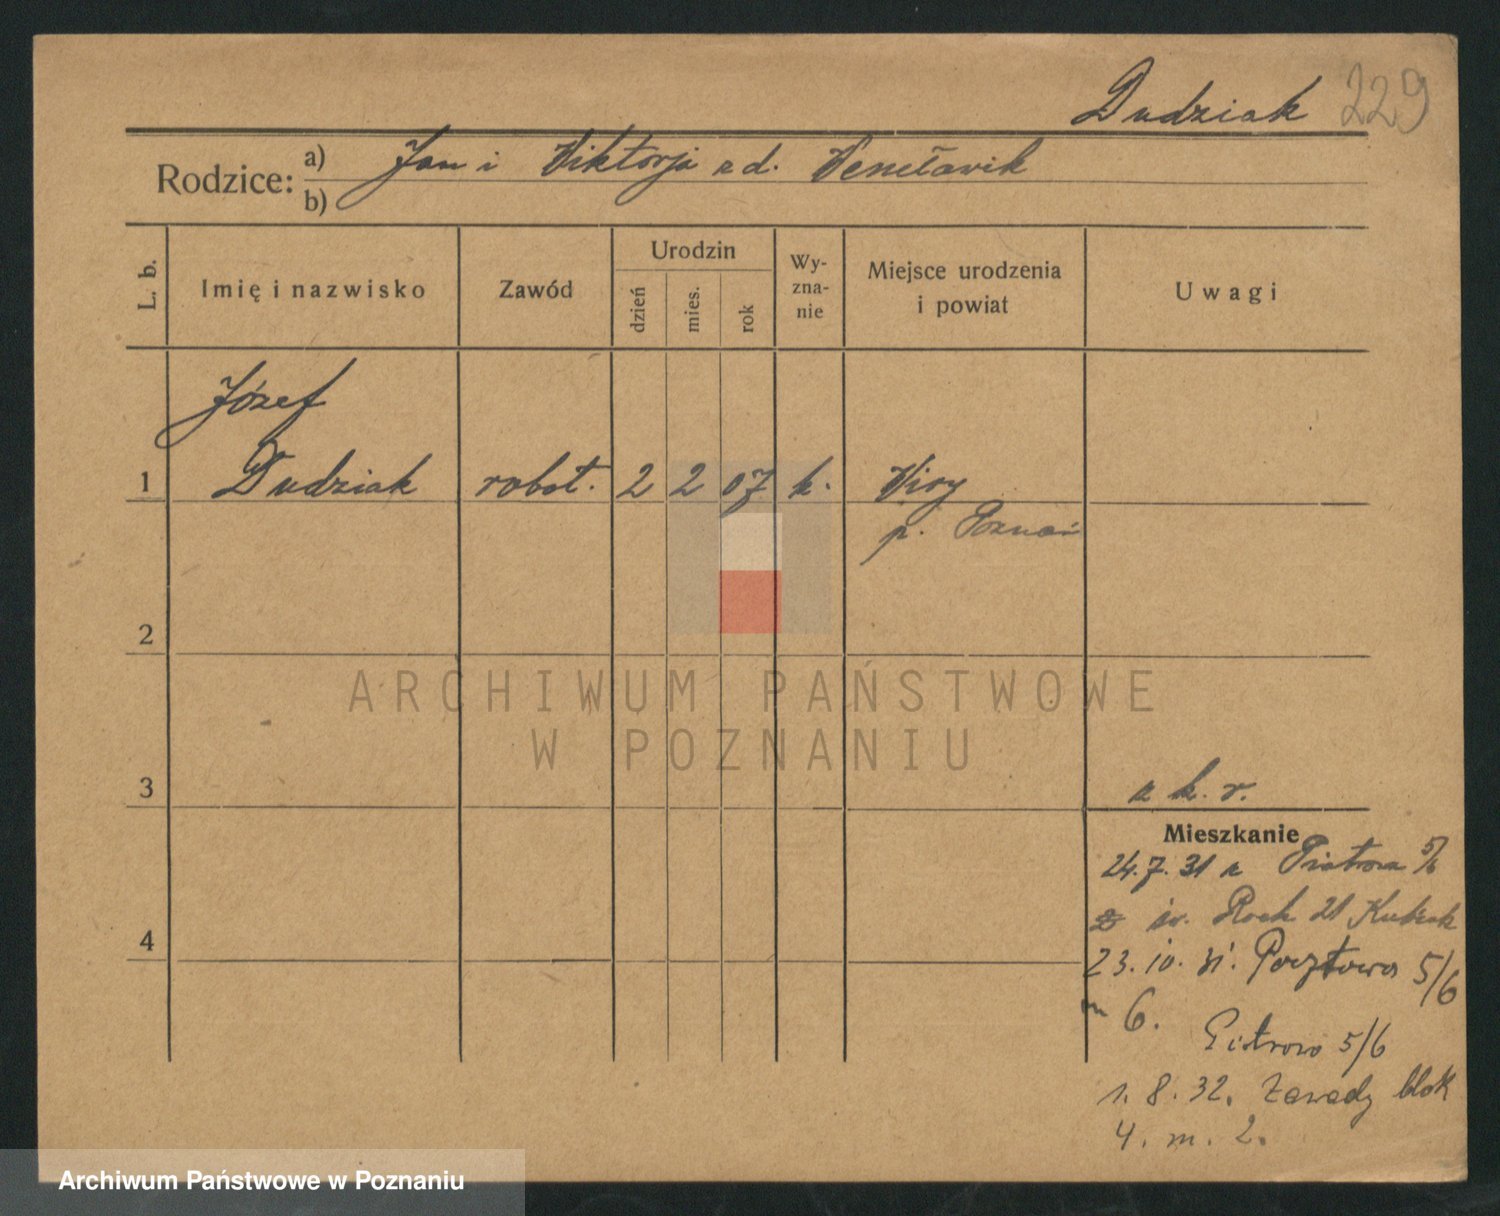 Dudziak 229
Rodzice: a) Jan i Wiktorja zd.
b)
L. b.
Imię i nazwisko
Zawód
Urodzin
dzień
mies.
rok
Wy-
zna-
nie
Miejsce urodzenia
i powiat
Uwagi
Józef
1 Dudziak robot. 2 2 07 k. Wiry
p. Poznań
2
ARCHIWUM PAŃSTWOWE
W POZNANIU
3
k. r.
Mieszkanie
24.7.31 z Piotrowa 5/6
św. Roch 21 Kubiak
4
23.10.31. Pocztowa 5/6
m 6.
Piotrowo 5/6
1. 8. 32. Zawady blok
4. m. 2.
Archiwum Państwowe w Poznaniu